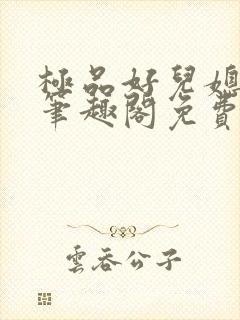 極品好兒媳
筆趣閣免費
雲吞公子